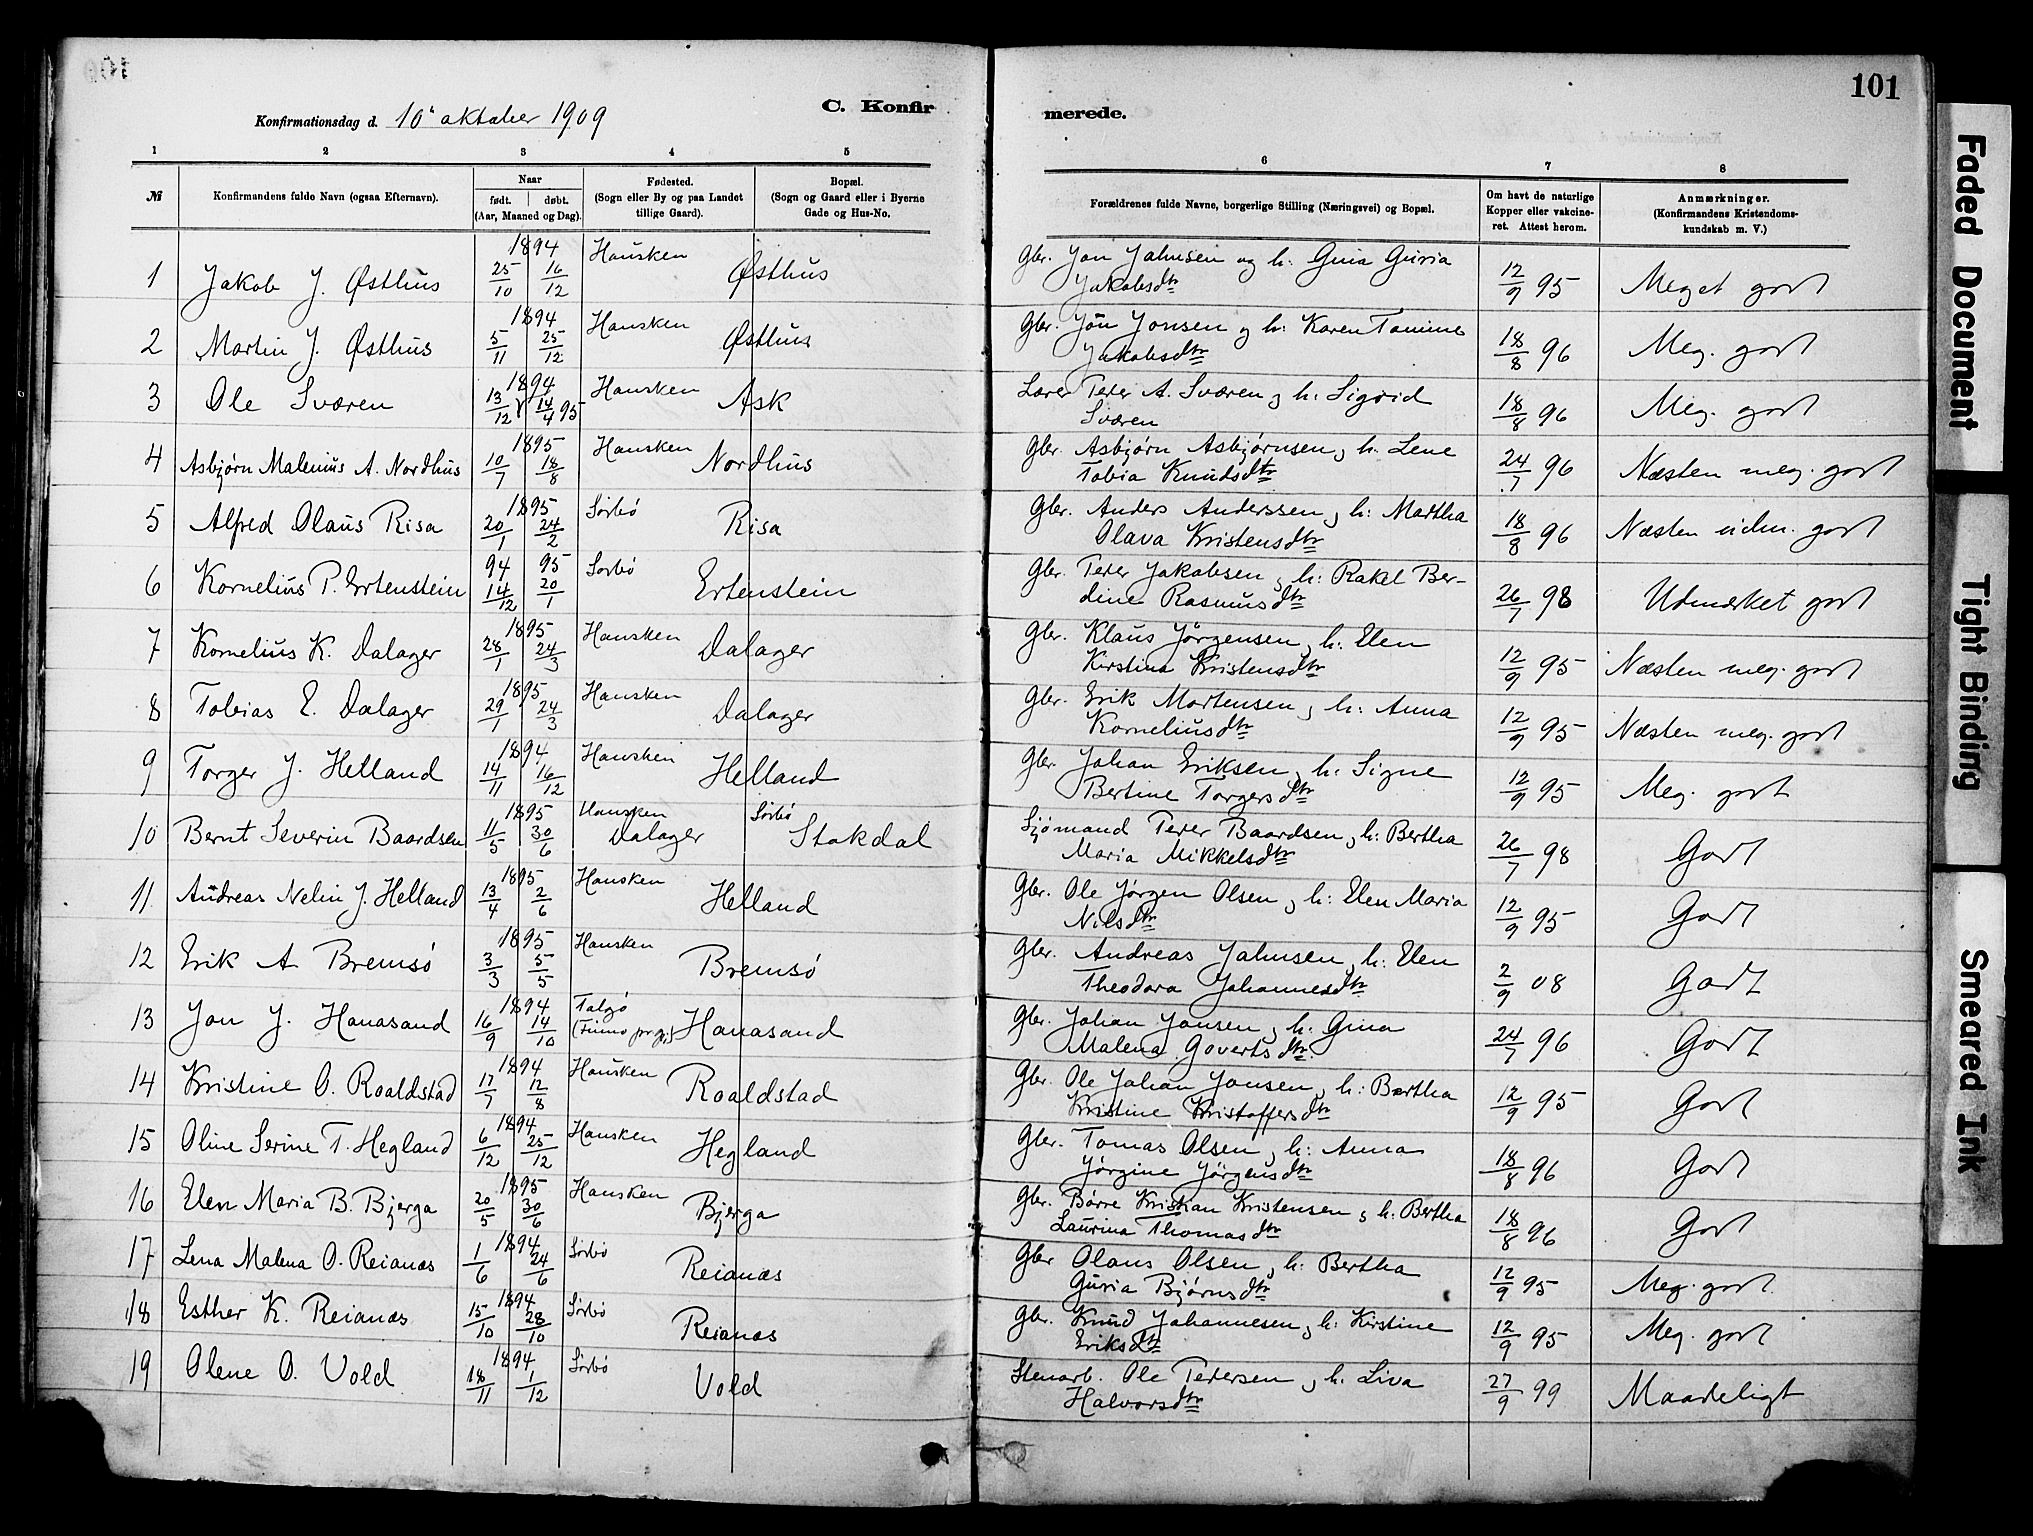 101
C. Konfirmerede.
Konfirmationsdag d. 10de oktober 1909
1 2 3 4 5 6 7 8
№ | Konfirmandens fulde Navn (ogsaa Efternavn). | Naar født. døbt. (Aar, Maaned og Dag). | Fødested. (Sogn eller By og paa Landet tillige Gaard). | Bopæl. (Sogn og Gaard eller i Byerne Gade og Hus-No. | Forældrenes fulde Navne, borgerlige Stilling (Næringsvei) og Bopæl. | Om havt de naturlige Kopper eller vakcineret. Attest herom. | Anmærkninger. (Konfirmandens Kristendomskundskab m. V.)
1 | Jakob J. Østhus | 1894 25/10 16/12 | Hausken | Østhus | Gbr. Jon Johnsen og h: Gina Guria Jakobsdtr | 12/9 95 | Meget godt
2 | Martin J. Østhus | 1894 5/11 25/12 | Hausken | Østhus | Gbr. Jon Jonsen og h: Karen Tomine Jakobsdtr | 18/8 96 | Meg. godt
3 | Ole Sværen | 1894 13/12 14/4 95 | Hausken | Ask | Lærer Peter A. Sværen og h: Sigrid Sværen | 18/8 96 | Meg. godt
4 | Asbjørn Malenius A. Nordhus | 1895 10/7 18/8 | Hausken | Nordhus | Gbr. Asbjørn Asbjørnsen, h. Lene Tobia Knudsdtr | 24/7 96 | Næsten meg. godt
5 | Alfred Olaus Risa | 1895 20/1 24/2 | Sørbø | Risa | Gbr. Anders Anderssen, h: Martha Olava Kristensdtr | 18/8 96 | Næsten udm. godt
6 | Kornelius P. Ertenstein | 94 14/12 95 20/1 | Sørbø | Ertenstein | Gbr. Peter Jakobsen, h: Rakel Berdine Rasmusdtr | 26/7 98 | Udmerket godt
7 | Kornelius K. Dalager | 1895 28/1 24/3 | Hausken | Dalager | Gbr. Klaus Jørgensen, h: Elen Kirstina Kristensdtr | 12/9 95 | Næsten meg. godt
8 | Tobias E. Dalager | 1895 29/1 24/3 | Hausken | Dalager | Gbr. Erik Mortensen, h: Anna Korneliusdtr | 12/9 95 | Næsten meg. godt
9 | Torger J. Helland | 1894 14/11 16/12 | Hausken | Helland | Gbr. Johan Eriksen, h: Signe Bertine Torgersdtr | 12/9 95 | Meg. godt
10 | Bernt Severin Baardsen | 1895 11/5 30/6 | Hausken Dalager | Sørbø Stokdal | Sjömand Peter Baardsen, h: Bertha Maria Mikkelsdtr | 26/7 98 | Godt
11. | Andreas Nelin J. Helland | 1895 13/4 2/6 | Hausken | Helland | Gbr. Ole Jörgen Olsen, h: Elen Maria Nilsdtr | 12/9 95 | Godt
12 | Erik A Bremsö | 1895 3/3 5/5 | Hausken | Bremsö | Gbr. Andreas Johnsen, h: Elen Theodora Johannesdtr | 2/9 08 | Godt
13 | Jon J. Hanasand | 1894 16/9 14/10 | Talgø (Finnø prgj.) | Hanasand | Gbr. Johan Jonsen, h: Gina Malena Govertsdtr. | 24/7 96 | Godt
14 | Kristine O. Roaldstad | 1894 17/7 12/8 | Hausken | Roaldstad | Gbr. Ole Johan Jonsen, h: Bertha Kristine Kristoffersdtr | 12/9 95 | Godt
15 | Oline Serine T. Hegland | 1894 6/12 25/12 | Hausken | Hegland | Gbr. Tomas Olsen, h: Anna Jörgine Jörgensdtr | 18/8 96 | Godt
16 | Elen Maria B. Bjerga | 1895 20/5 30/6 | Hausken | Bjerga | Gbr. Börre Kristian Kristensen, h: Bertha Laurina Thomasdtr | 18/8 96 | Godt
17 | Lena Malena O. Reianæs | 1894 1/6 24/6 | Sörbö | Reianæs | Gbr Olaus Olsen, h: Bertha Guria Bjørnsdtr | 12/9 95 | Meg. godt.
18 | Esther K. Reianæs | 1894 15/10 28/10 | Sörbö | Reianæs | Gbr. Knud Johannesen, h: Kirstine Eriksdtr | 12/9 95 | Meg. godt
19 | Olene O. Vold | 1894 18/11 1/12 | Sörbö | Vold | Stenarb. Ole Petersen, h. Liva Halvorsdtr | 27/9 99 | Maadeligt
Faded Document
Tight Binding
Smeared Ink